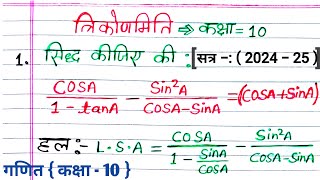 त्रिकोणमिति ⇒ कक्षा = 10
1. सिद्ध कीजिए की : [सत्र -: ( 2024 - 25 )]
COSA / 1 - tanA - Sin²A / COSA - SinA = (COSA + SinA)
हल :- L·S·A = COSA / 1 - SinA / COSA - Sin²A / COSA - SinA
गणित { कक्षा - 10 }